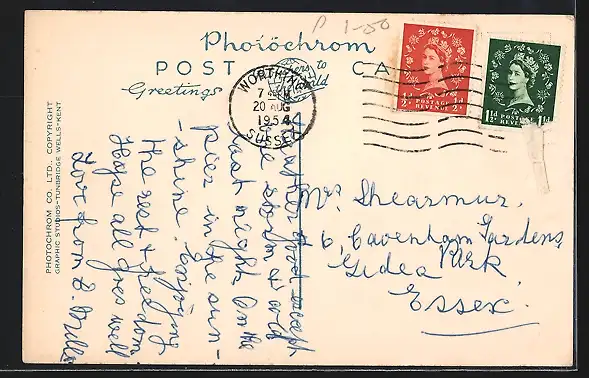 P 1-00
Photochrom
POST CA
Greetings
to
WORTHING
7
20 AUG
1954
SUSSEX
½d POSTAGE REVENUE ½d
1½d POSTAGE REVENUE 1½d
PHOTOCHROM CO. LTD., COPYRIGHT
GRAPHIC STUDIOS-TUNBRIDGE WELLS-KENT
Weather good except
for storm & cold
last night. On the
pier in the sun-
-shine. Enjoying
the rest & freedom
Hope all goes well
Love from D.
Mrs Shearmur.
6, Cavenham Gardens,
Gidea Park,
Essex.